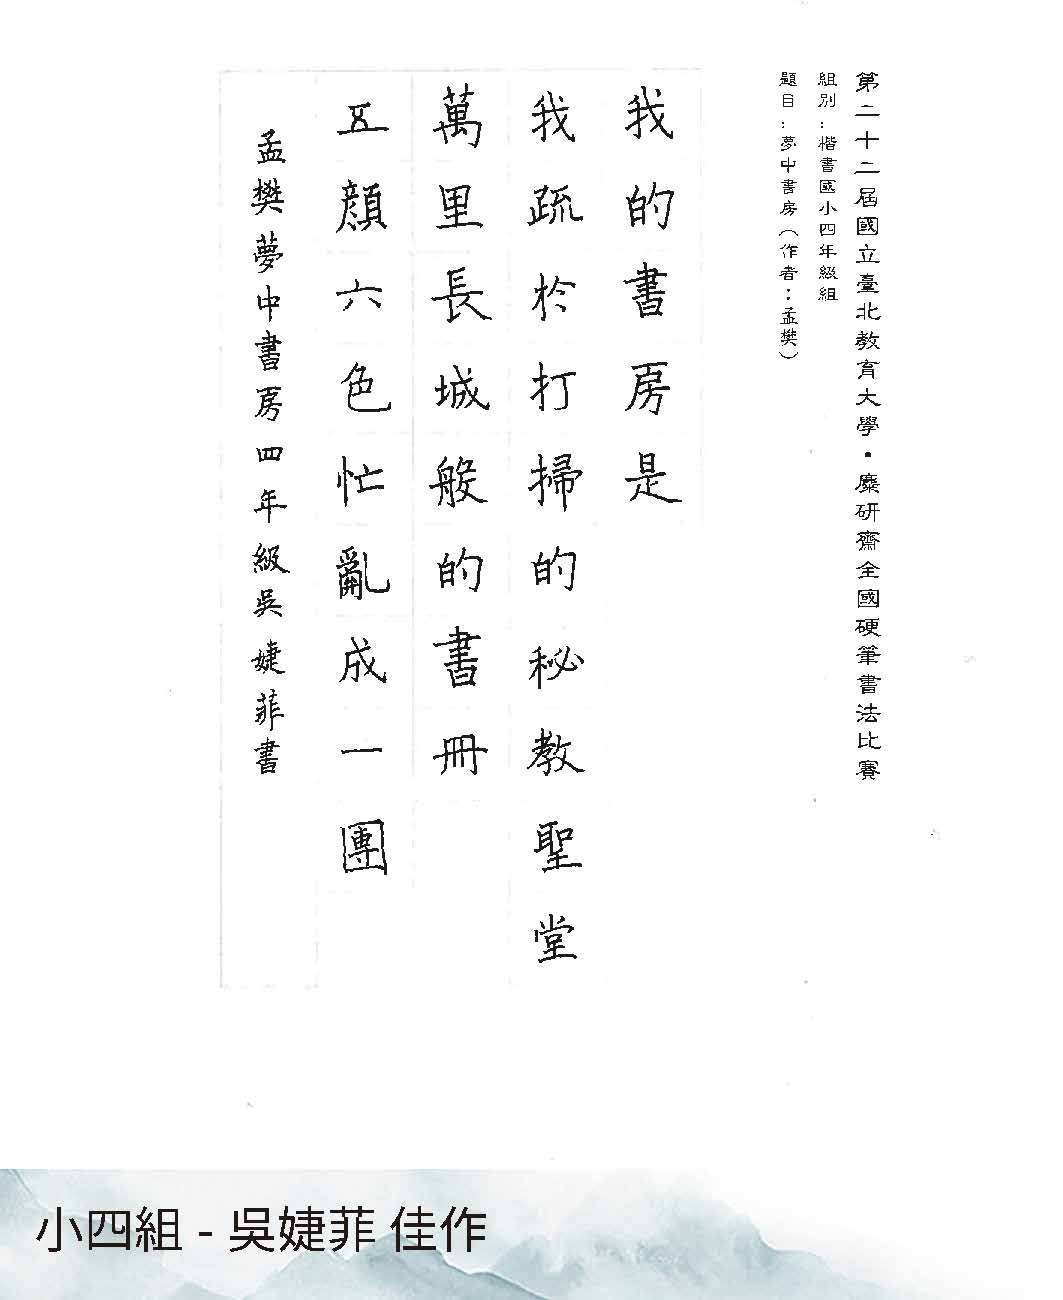 第二十二屆國立臺北教育大學・麋研齋全國硬筆書法比賽
組別：楷書國小四年級組
題目：夢中書房（作者：孟樊）
我的書房是
我疏於打掃的秘教聖堂
萬里長城般的書冊
五顏六色忙亂成一團
孟樊夢中書房四年級吳婕菲書
小四組 - 吳婕菲 佳作